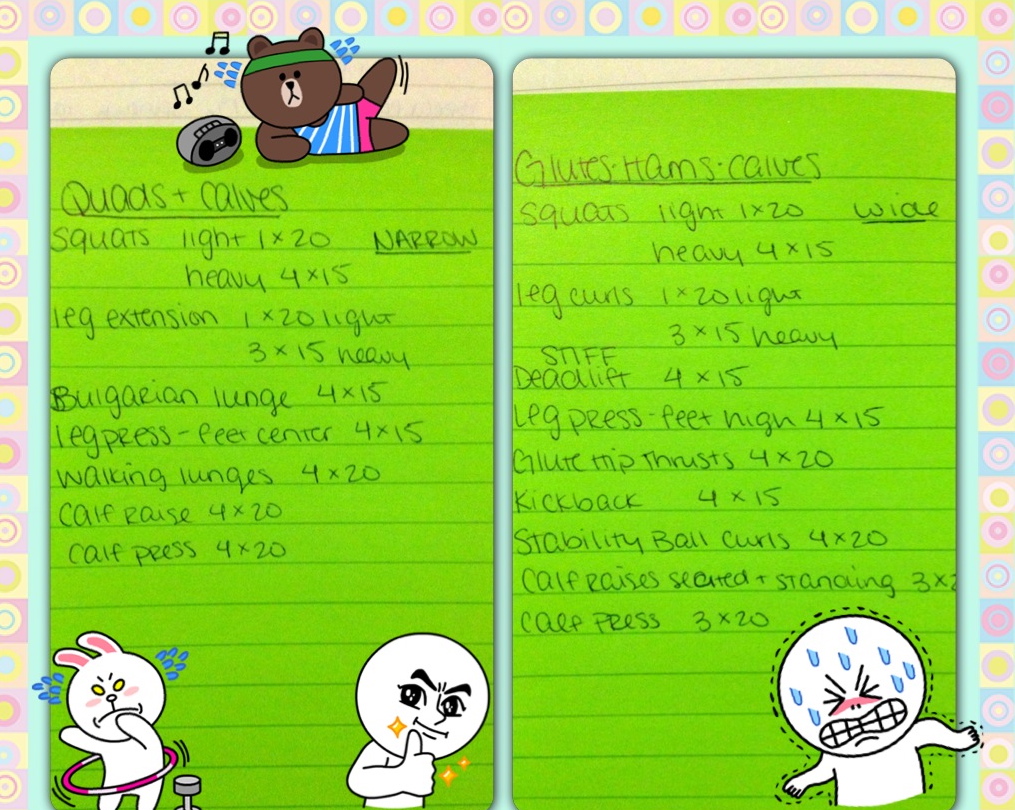 Quads + Calves
Squats light 1x20 NARROW
heavy 4x15
leg extension 1x20 light
3x15 heavy
Bulgarian lunge 4x15
leg press - feet center 4x15
walking lunges 4x20
calf raise 4x20
calf press 4x20
Glutes-Hams-Calves
squats light 1x20 wide
heavy 4x15
leg curls 1x20 light
3x15 heavy
STIFF
Deadlift 4x15
Leg press - feet high 4x15
Glute Hip Thrusts 4x20
Kickback 4x15
Stability Ball curls 4x20
Calf Raises seated + standing 3x2
Calf Press 3x20